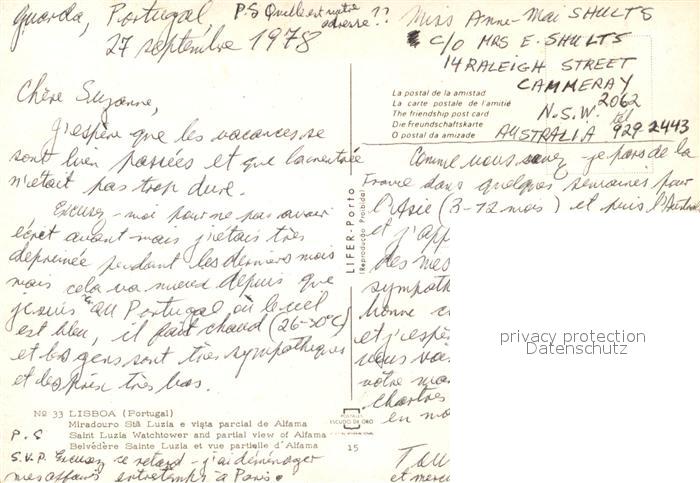 Guarda, Portugal,
27 septembre 1978
P.S Quelle est votre
adresse??
Chère Suzanne,
J'espère que les vacances se
sont bien passées et que la rentrée
n'était pas trop dure.
Excusez-moi pour ne pas avoir
écrit avant mais j'étais très
deprimée pendant les derniers mois
mais cela va mieux depuis que
je suis au Portugal où le ciel
est bleu, il fait chaud (26-30°C)
et les gens sont très sympathiques
et les prix très bas.
Nº 33 LISBOA (Portugal)
Miradouro Stª Luzia e vista parcial de Alfama
Saint Luzia Watchtower and partial view of Alfama
Belvédère Sainte Luzia et vue partielle d'Alfama
P.S
S.V.P. Excusez ce retard - j'ai déménager
mes affaires entretemps à Paris.
LIFER-Porto
(Reprodução Proibida)
POSTALES
ESCUDO DE ORO
15
Miss Anne-Mai SHULTS
C/O MRS E. SHULTS
14 RALEIGH STREET
CAMMERAY
N.S.W. 2062
AUSTRALIA
tél
929 2443
La postal de la amistad
La carte postale de l'amitié
The friendship post card
Die Freundschaftskarte
O postal da amizade
Comme vous savez je pars de la
France dans quelques semaines pour
l'Asie (3-12 mois) et puis l'Austral
et j'app
des mes
sympath
bonne
et j'espè
vous
votre
chartres
en
et merci
privacy protection
Datenschutz